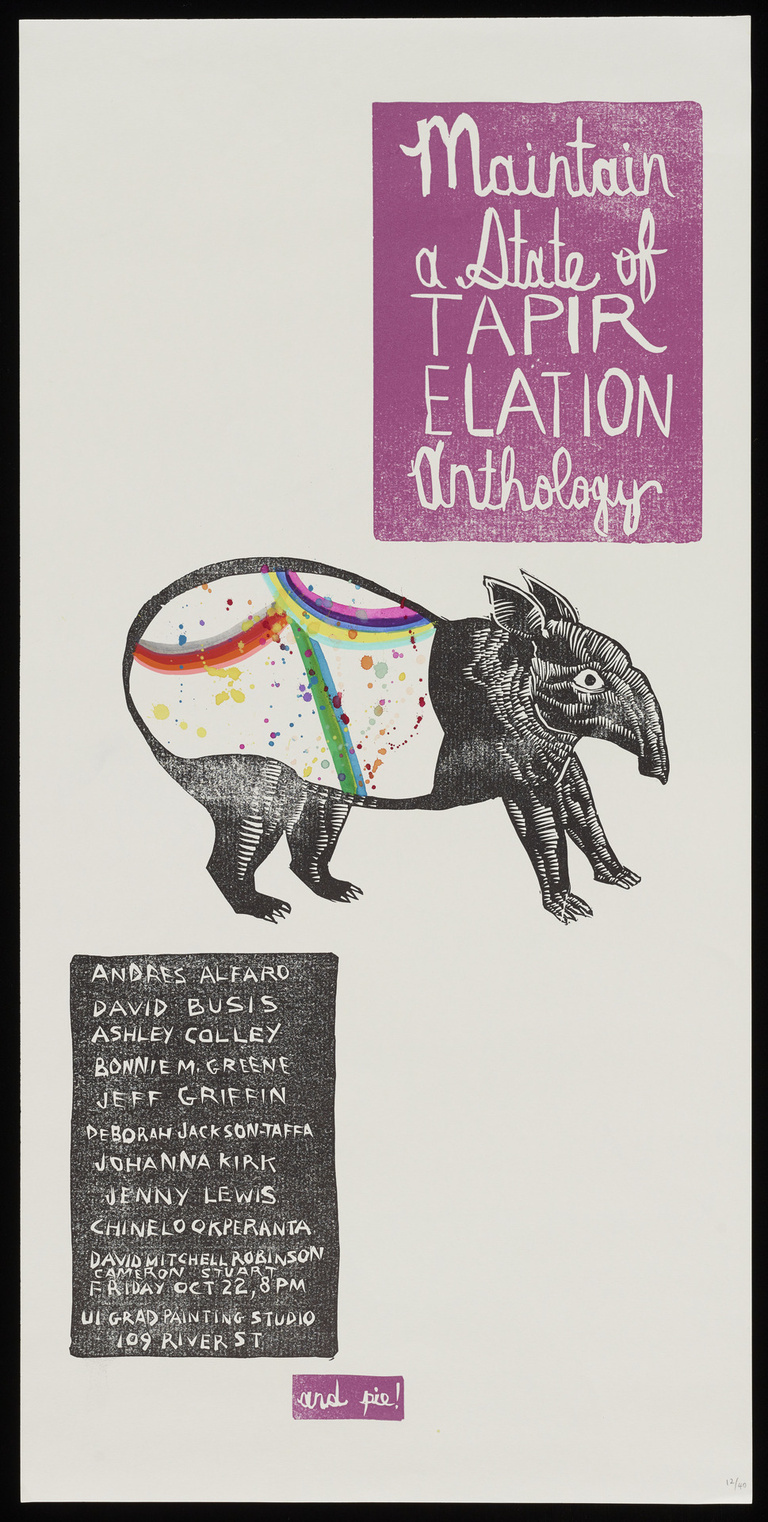 Maintain
a State of
TAPIR
ELATION
Anthology
ANDRES ALFARO
DAVID BUSIS
ASHLEY COLLEY
BONNIE M. GREENE
JEFF GRIFFIN
DEBORAH JACKSON-TAFFA
JOHANNA KIRK
JENNY LEWIS
CHINELO OKPERANTA
DAVID MITCHELL ROBINSON
CAMERON STUART
FRIDAY OCT 22, 8 PM
UI GRAD PAINTING STUDIO
109 RIVER ST
and pie!
12/40